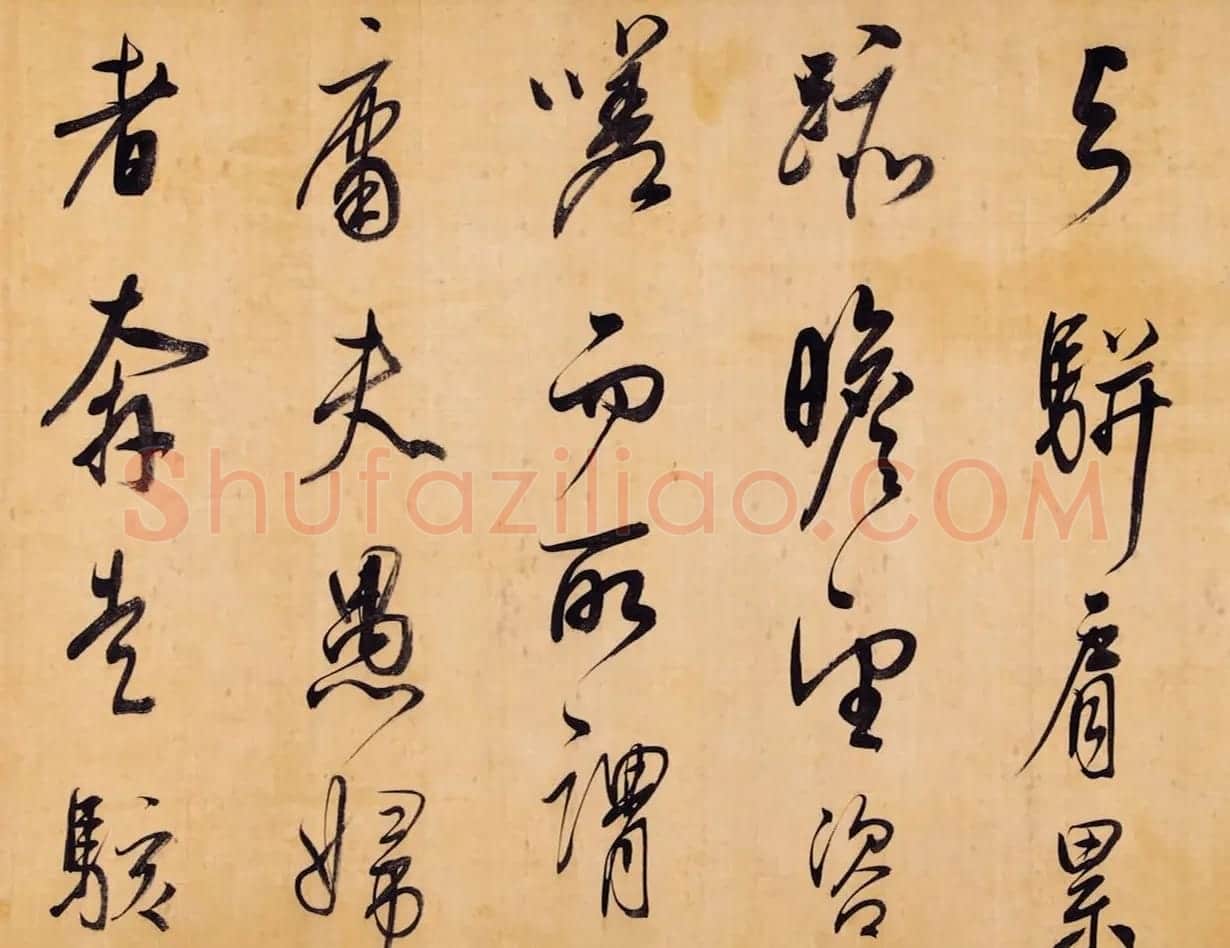 与駢肩累
跡瞻望咨
嗟而所謂
庸夫愚婦
者奔走駭
Shufaziliao.COM